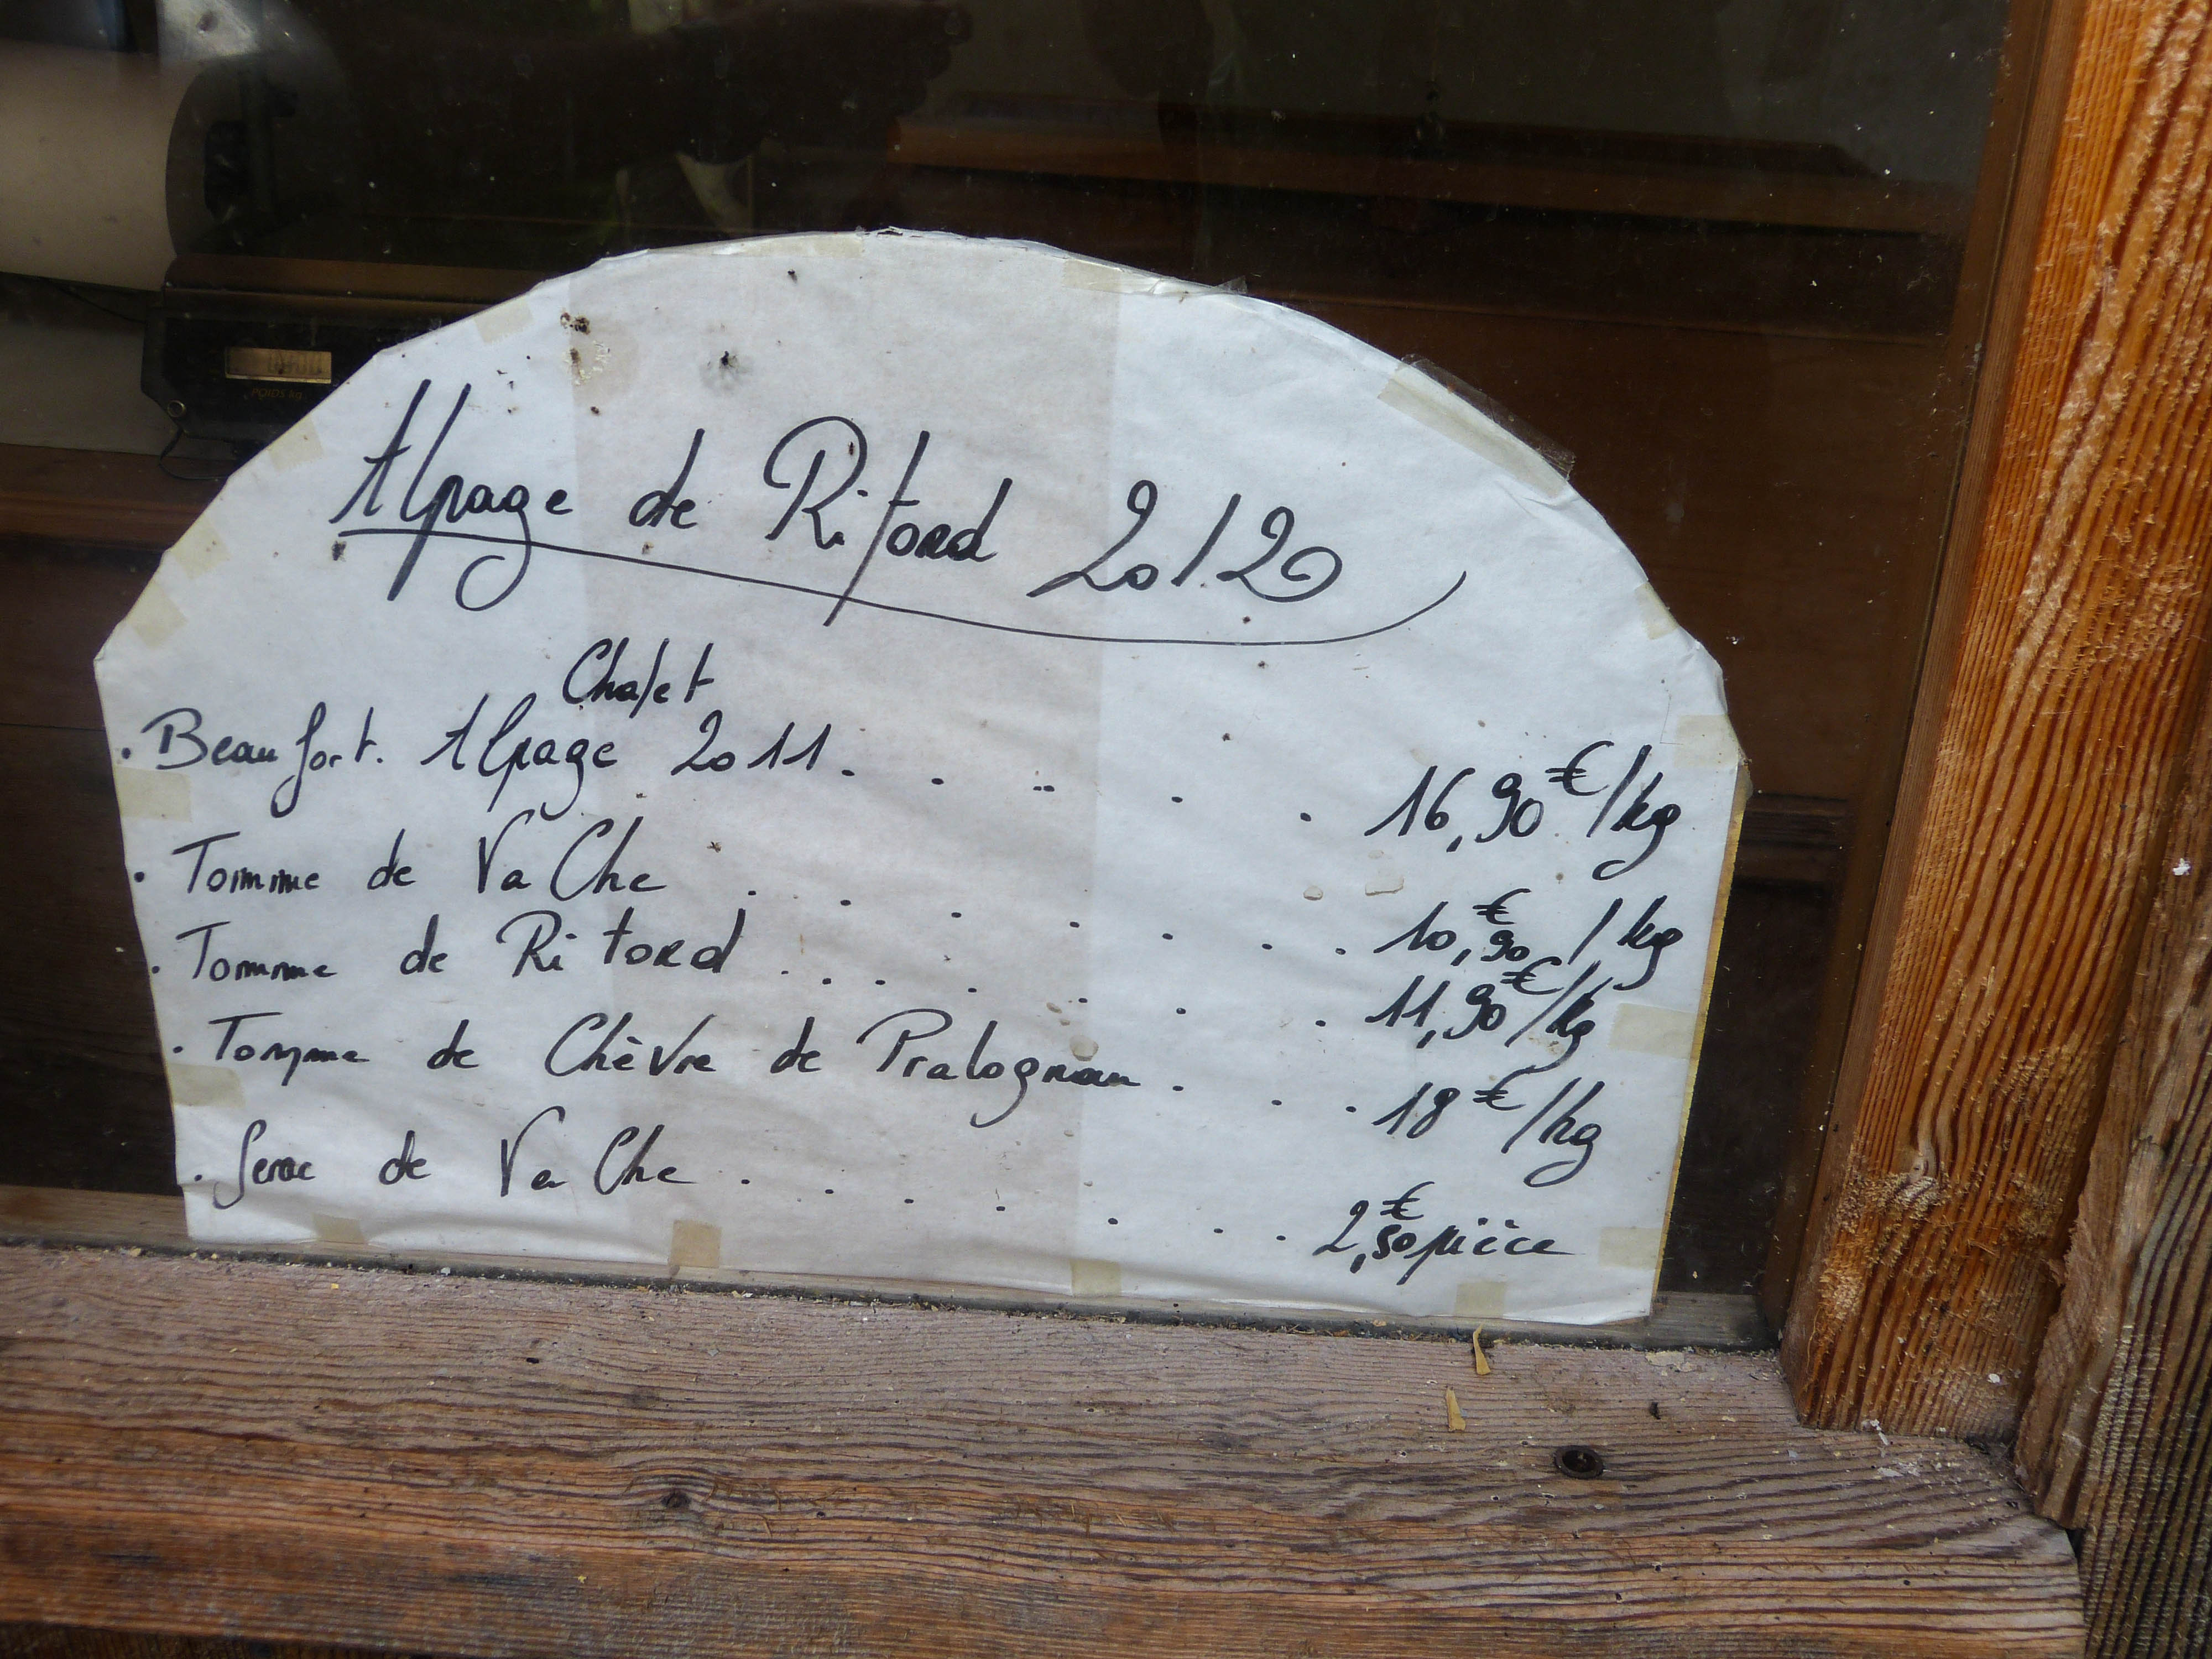 Alpage de Ritord 2012
Chalet
. Beaufort. Alpage 2011. . .. . . 16,90€/kg
. Tomme de Vache . . . . . . . 10,90€/kg
. Tomme de Ritord . . . . . . . 11,90€/kg
. Tomme de Chèvre de Pralognan . . . 18€/kg
. Serac de Vache . . . . . . . 2,50€ pièce
POIDS kg